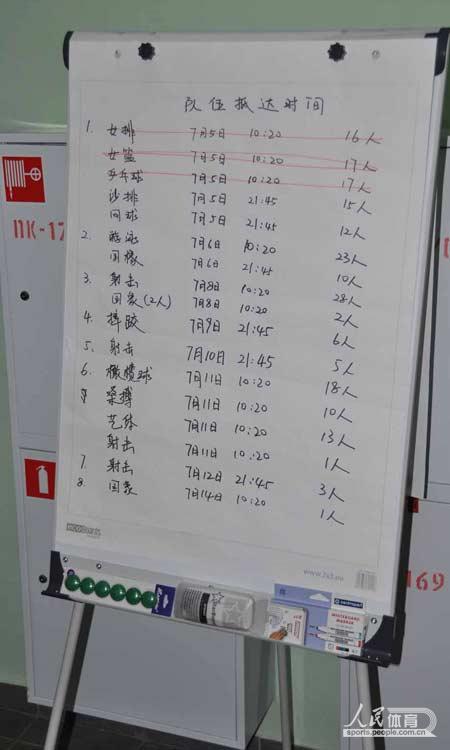 队伍抵达时间
1. 女排 7月5日 10:20 16人
女篮 7月5日 10:20 17人
乒乓球 7月5日 10:20 17人
沙排 7月5日 21:45 15人
网球 7月5日 21:45 12人
2. 游泳 7月6日 10:20 23人
国象 7月6日 21:45 10人
3. 射击 7月8日 10:20 28人
国象(2人) 7月8日 10:20 2人
4. 摔跤 7月9日 21:45 6人
5. 射击 7月10日 21:45 5人
6. 橄榄球 7月11日 10:20 18人
柔搏 7月11日 10:20 10人
艺体 7月11日 10:20 13人
射击 7月11日 10:20 1人
7. 射击 7月12日 21:45 3人
8. 国象 7月14日 10:20 1人
www.2x3.eu
ПК-17
169
centropen
WHITEBOARD MARKER
人民体育
sports.people.com.cn